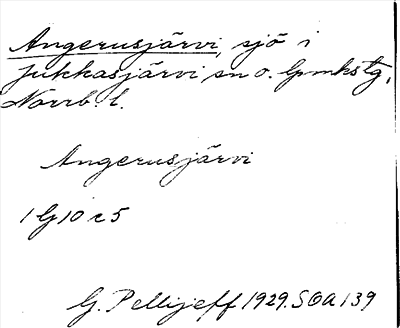 Angerusjärvi, sjö i
Jukkasjärvi sn o. lpmkstg,
Norrb. l.
Angerusjärvi
1 lg 10 c 5
G. Pellijeff 1929. SOA 139